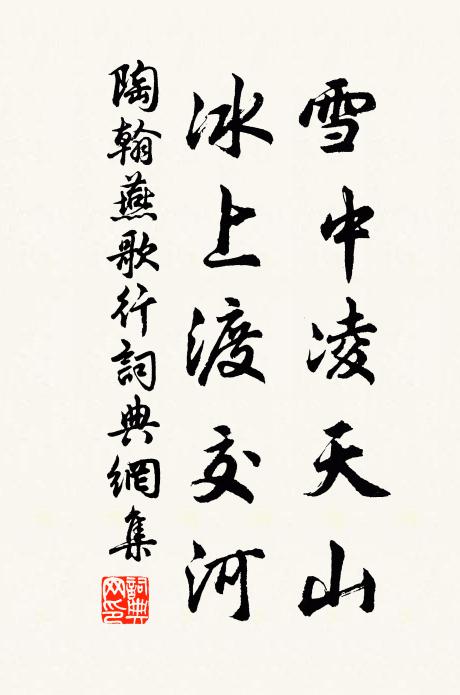 雪中凌天山
冰上渡交河
陶翰燕歌行詞典網集
詞典網印